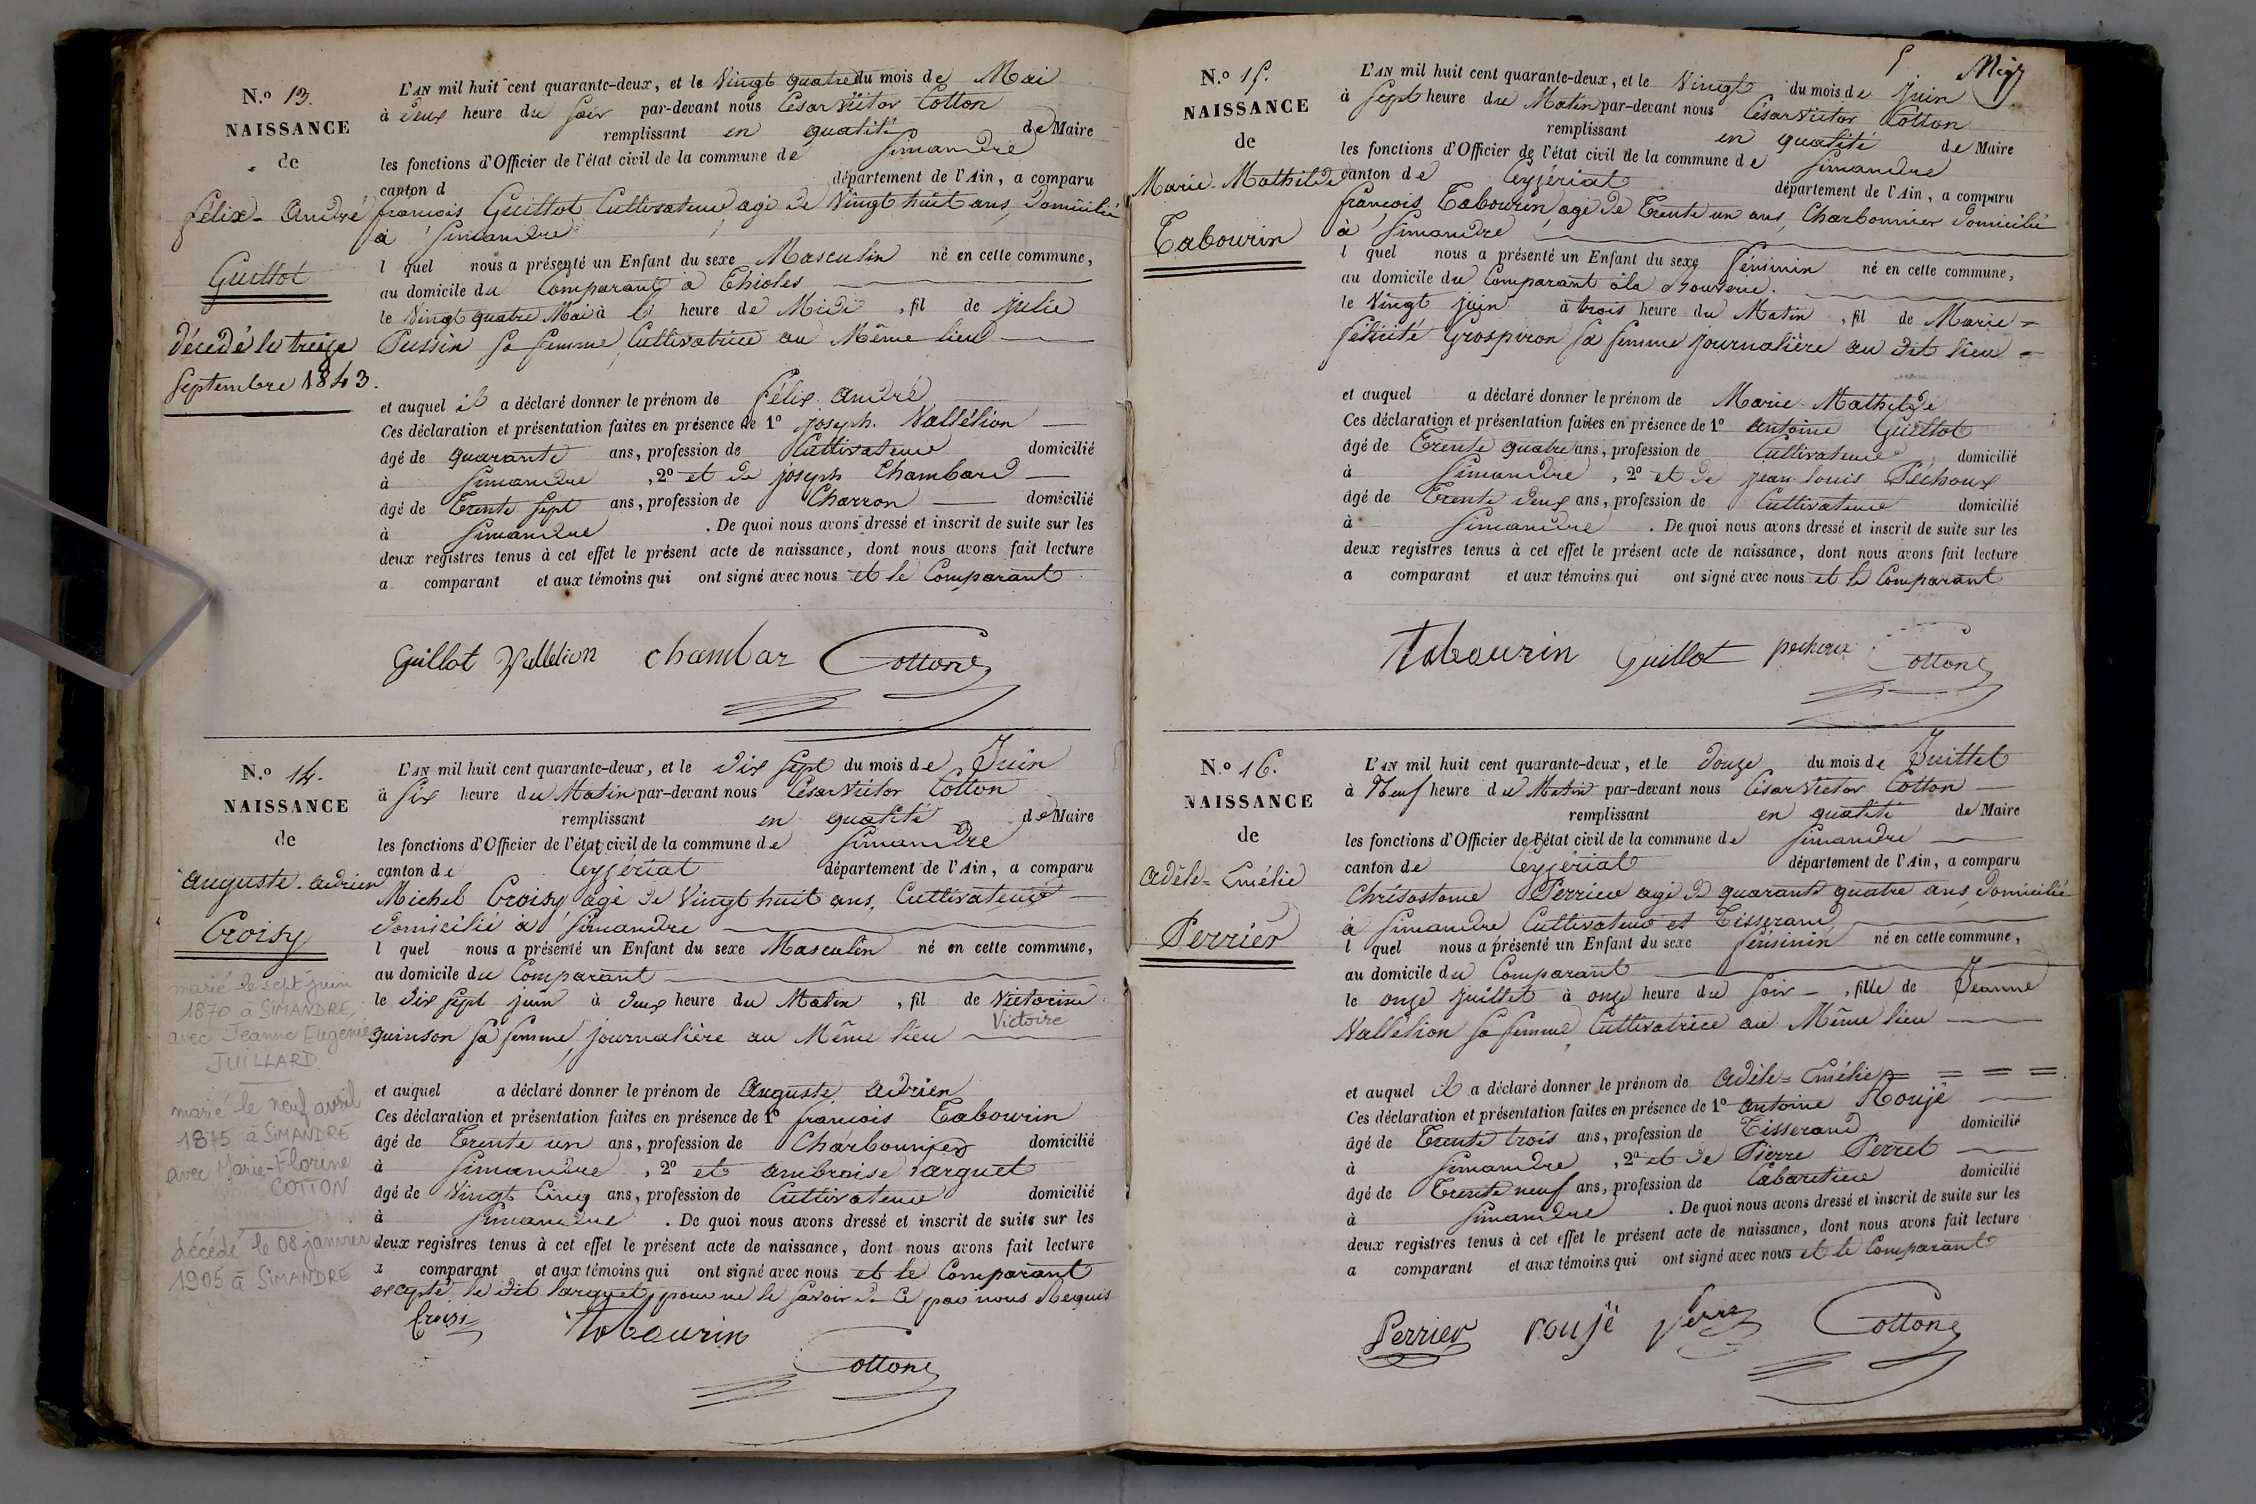 N.o 13.
NAISSANCE
de
félix-André
Guillot
décédé le treize
Septembre 1843.
L'AN mil huit cent quarante-deux, et le Vingt quatre du mois de Mai
à deux heure du Soir par-devant nous César Victor Cotton
remplissant en qualité de Maire
les fonctions d'Officier de l'état civil de la commune de Simandre
canton d département de l'Ain, a comparu
françois Guillot Cultivateur, agé de Vingt huit ans, Domicilié
à Simandre
l quel nous a présenté un Enfant du sexe Masculin né en cette commune,
au domicile du Comparant à Thioles
le Vingt quatre Mai à heure de Midi , fil de julie
Pussin sa femme, Cultivatrice au Même lieu
et auquel il a déclaré donner le prénom de félix André
Ces déclaration et présentation faites en présence de 1o joseph Vallélion
âgé de quarante ans, profession de Cultivateur domicilié
à Simandre , 2o et de joseph Chambard
âgé de Trente Sept ans, profession de Charron domicilié
à Simandre . De quoi nous avons dressé et inscrit de suite sur les
deux registres tenus à cet effet le présent acte de naissance, dont nous avons fait lecture
a comparant et aux témoins qui ont signé avec nous et le Comparant
Guillot Vallélion chambar Cotton
N.o 14.
NAISSANCE
de
Auguste-Adrien
Croisy
marié le sept juin
1870 à SIMANDRE,
avec Jeanne Eugenie
JUILLARD
marié le neuf avril
1875 à SIMANDRE
avec Marie-Florine
COTTON
décédé le 08 janvier
1905 à SIMANDRE
L'AN mil huit cent quarante-deux, et le dix Sept du mois de Juin
à Six heure du Matin par-devant nous César Victor Cotton
remplissant en qualité de Maire
les fonctions d'Officier de l'état civil de la commune de Simandre
canton de Ceyzériat département de l'Ain, a comparu
Michel Croisy agé de Vingt huit ans, Cultivateur
domicilié à Simandre
l quel nous a présenté un Enfant du sexe Masculin né en cette commune,
au domicile du Comparant
le dix Sept juin à deux heure du Matin , fil de Victorine
Victoire
quinson sa femme, journalière au Même lieu
et auquel a déclaré donner le prénom de Auguste Adrien
Ces déclaration et présentation faites en présence de 1o françois Tabourin
âgé de Trente un ans, profession de Charbonnier domicilié
à Simandre , 2o et ambroise Larguet
âgé de Vingt Cinq ans, profession de Cultivateur domicilié
à Simandre . De quoi nous avons dressé et inscrit de suite sur les
deux registres tenus à cet effet le présent acte de naissance, dont nous avons fait lecture
a comparant et aux témoins qui ont signé avec nous et le Comparant
excepté le dit Larguet, pour ne le Savoir de Ce par nous Requis
Croisi Tabourin Cotton
N.o 15.
NAISSANCE
de
Marie-Mathilde
Tabourin
5
L'AN mil huit cent quarante-deux, et le Vingt du mois de juin
à Sept heure du Matin par-devant nous César Victor Cotton
remplissant en qualité de Maire
les fonctions d'Officier de l'état civil de la commune de Simandre
canton de Ceyzériat département de l'Ain, a comparu
françois Tabourin, agé de Trente un ans, Charbonnier domicilié
à Simandre
l quel nous a présenté un Enfant du sexe féminin né en cette commune,
au domicile du Comparant à la
le Vingt juin à trois heure du Matin , fil de Marie=
félicité Grospiron sa femme journalière au dit lieu
et auquel a déclaré donner le prénom de Marie-Mathilde
Ces déclaration et présentation faites en présence de 1o antoine Guillot
âgé de Trente quatre ans, profession de Cultivateur domicilié
à Simandre , 2o et de jean louis Péchoux
âgé de Trente deux ans, profession de Cultivateur domicilié
à Simandre . De quoi nous avons dressé et inscrit de suite sur les
deux registres tenus à cet effet le présent acte de naissance, dont nous avons fait lecture
a comparant et aux témoins qui ont signé avec nous et le Comparant
Tabourin Guillot pechoux Cotton
N.o 16.
NAISSANCE
de
Adèle=Emélie
Perrier
L'AN mil huit cent quarante-deux, et le douze du mois de Juillet
à Neuf heure du Matin par-devant nous César Victor Cotton
remplissant en qualité de Maire
les fonctions d'Officier de l'état civil de la commune de Simandre
canton de Ceyzériat département de l'Ain, a comparu
Chrisostome Perrier agé de quarante quatre ans, domicilié
à Simandre Cultivateur et Tisserand
l quel nous a présenté un Enfant du sexe féminin né en cette commune,
au domicile du Comparant
le onze juillet à onze heure du Soir , fille de Jeanne
Vallélion sa femme, Cultivatrice au Même lieu
et auquel il a déclaré donner le prénom de Adèle=Emélie
Ces déclaration et présentation faites en présence de 1o antoine Roujé
âgé de Trente trois ans, profession de Tisserand domicilié
à Simandre , 2o et de Pierre Perret
âgé de Trente neuf ans, profession de Cabaretier domicilié
à Simandre . De quoi nous avons dressé et inscrit de suite sur les
deux registres tenus à cet effet le présent acte de naissance, dont nous avons fait lecture
a comparant et aux témoins qui ont signé avec nous et le Comparant
Perrier roujé Cotton